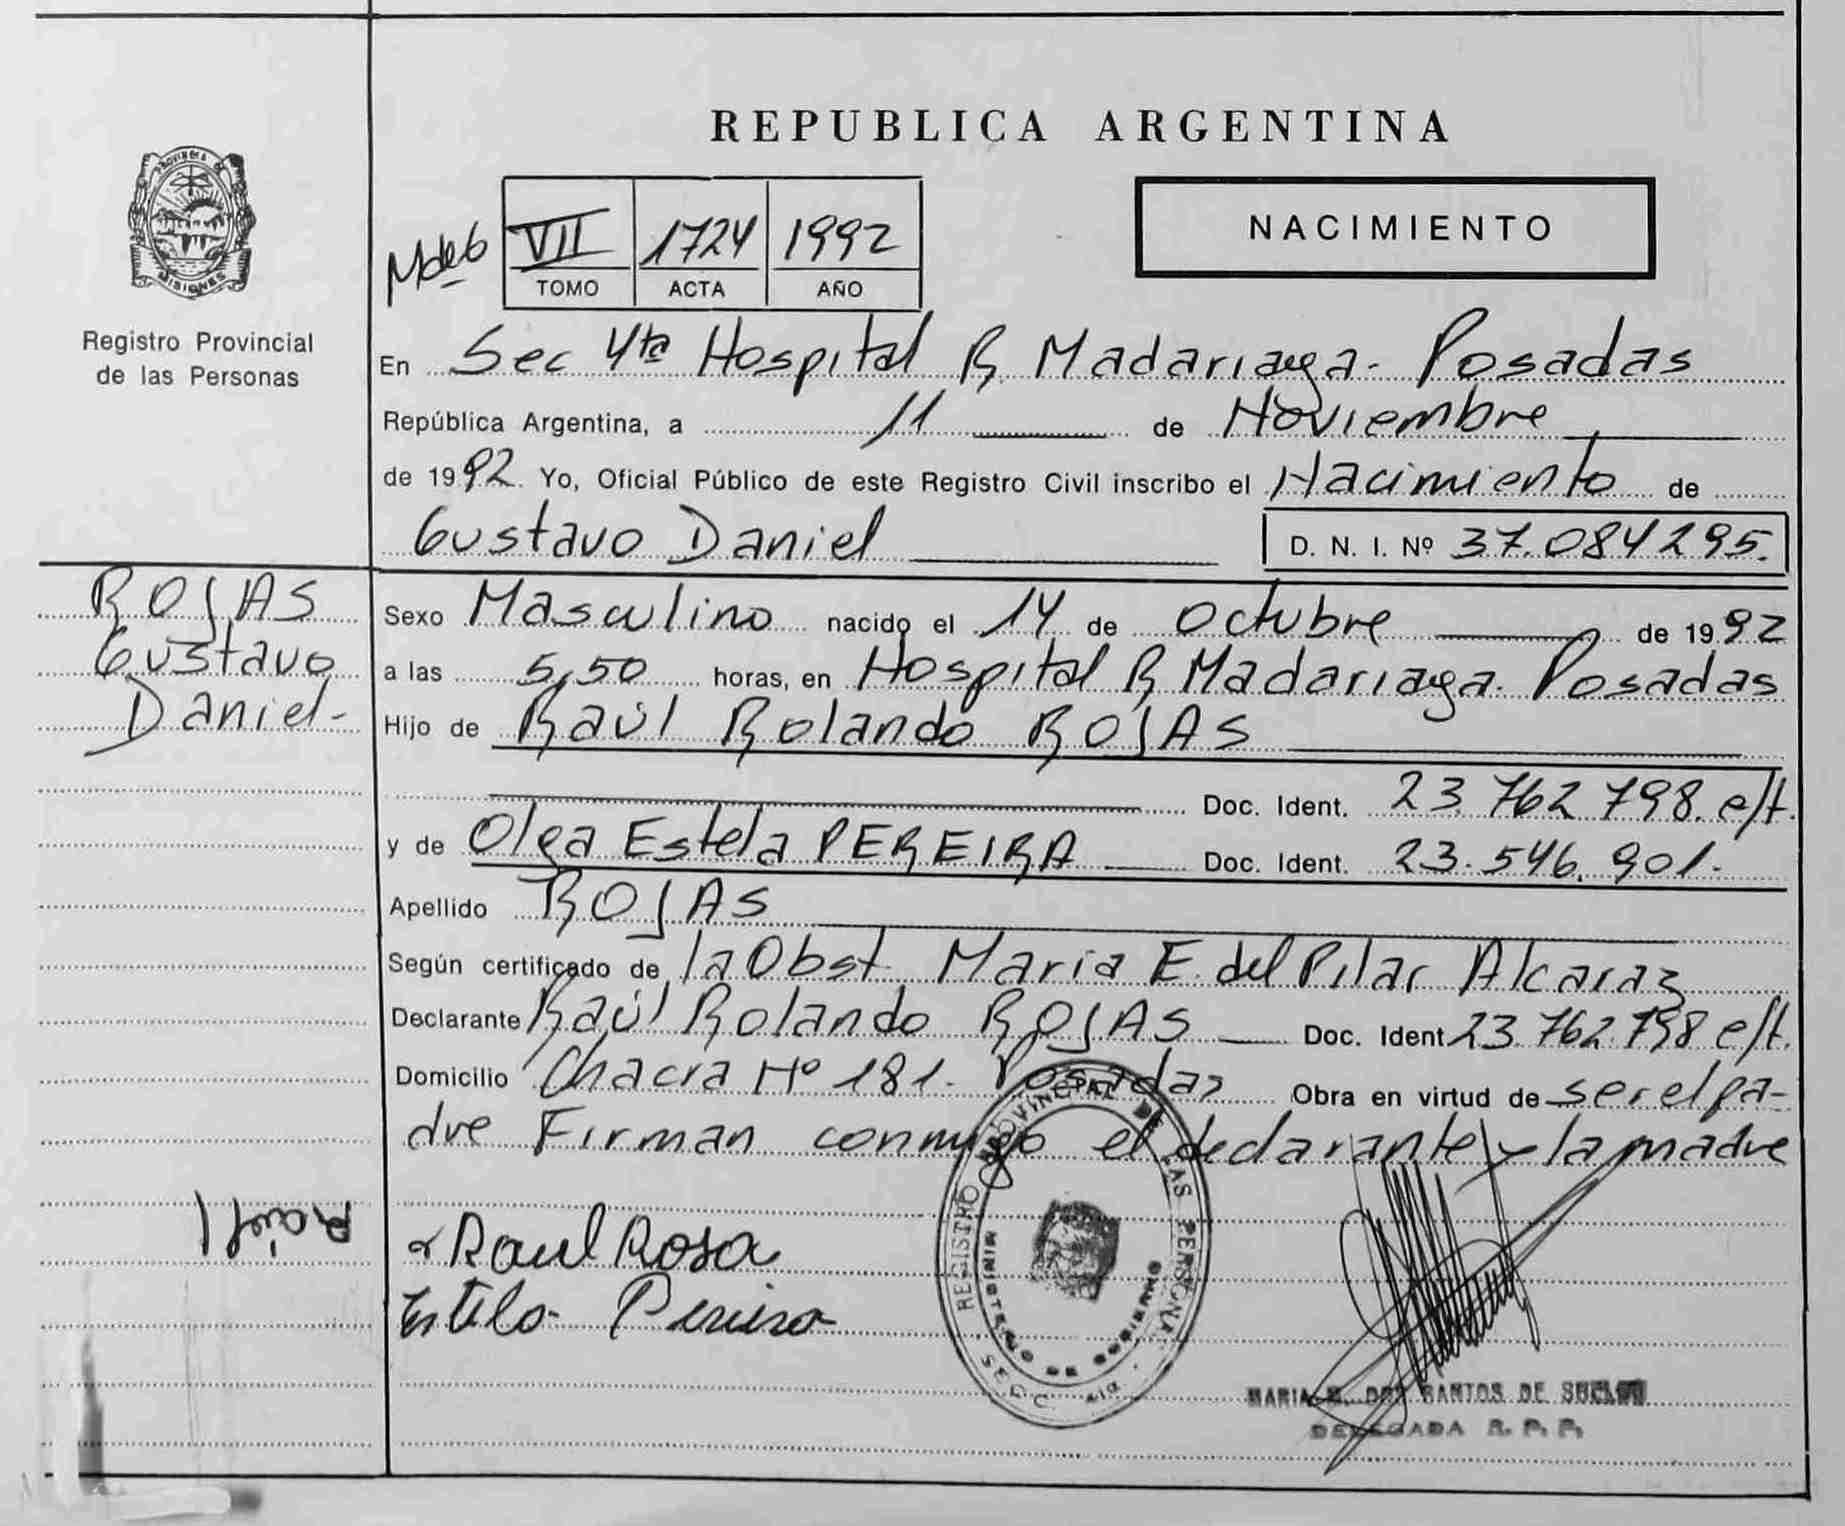 REPUBLICA ARGENTINA
PROVINCIA DE
MISIONES
Registro Provincial
de las Personas
VII 1724 1992
TOMO ACTA AÑO
NACIMIENTO
En Sec 4ta Hospital R Madariaga - Posadas
República Argentina, a 11 de Noviembre
de 1992. Yo, Oficial Público de este Registro Civil inscribo el Nacimiento de
Gustavo Daniel D. N. I. Nº 37.084295.
ROJAS
Gustavo
Daniel-
Sexo Masculino nacido el 14 de Octubre de 1992
a las 5,50 horas, en Hospital R Madariaga. Posadas
Hijo de Raúl Rolando ROJAS
Doc. Ident. 23.762.798. e/t.
y de Olga Estela PEREIRA Doc. Ident. 23.546.901.
Apellido ROJAS
Según certificado de la Obst. Maria E. del Pilar Alcaraz
Declarante Raúl Rolando ROJAS Doc. Ident 23.762.798 e/t.
Domicilio Chacra Nº 181. Posadas Obra en virtud de ser el pa-
dre Firman conmigo el declarante y la madre
Raul Rosa
Estela Pereira
REGISTRO PROVINCIAL DE LAS PERSONAS
MINISTERIO DE GOBIERNO
MARIA DOS SANTOS DE
DELEGADA R. P. P.